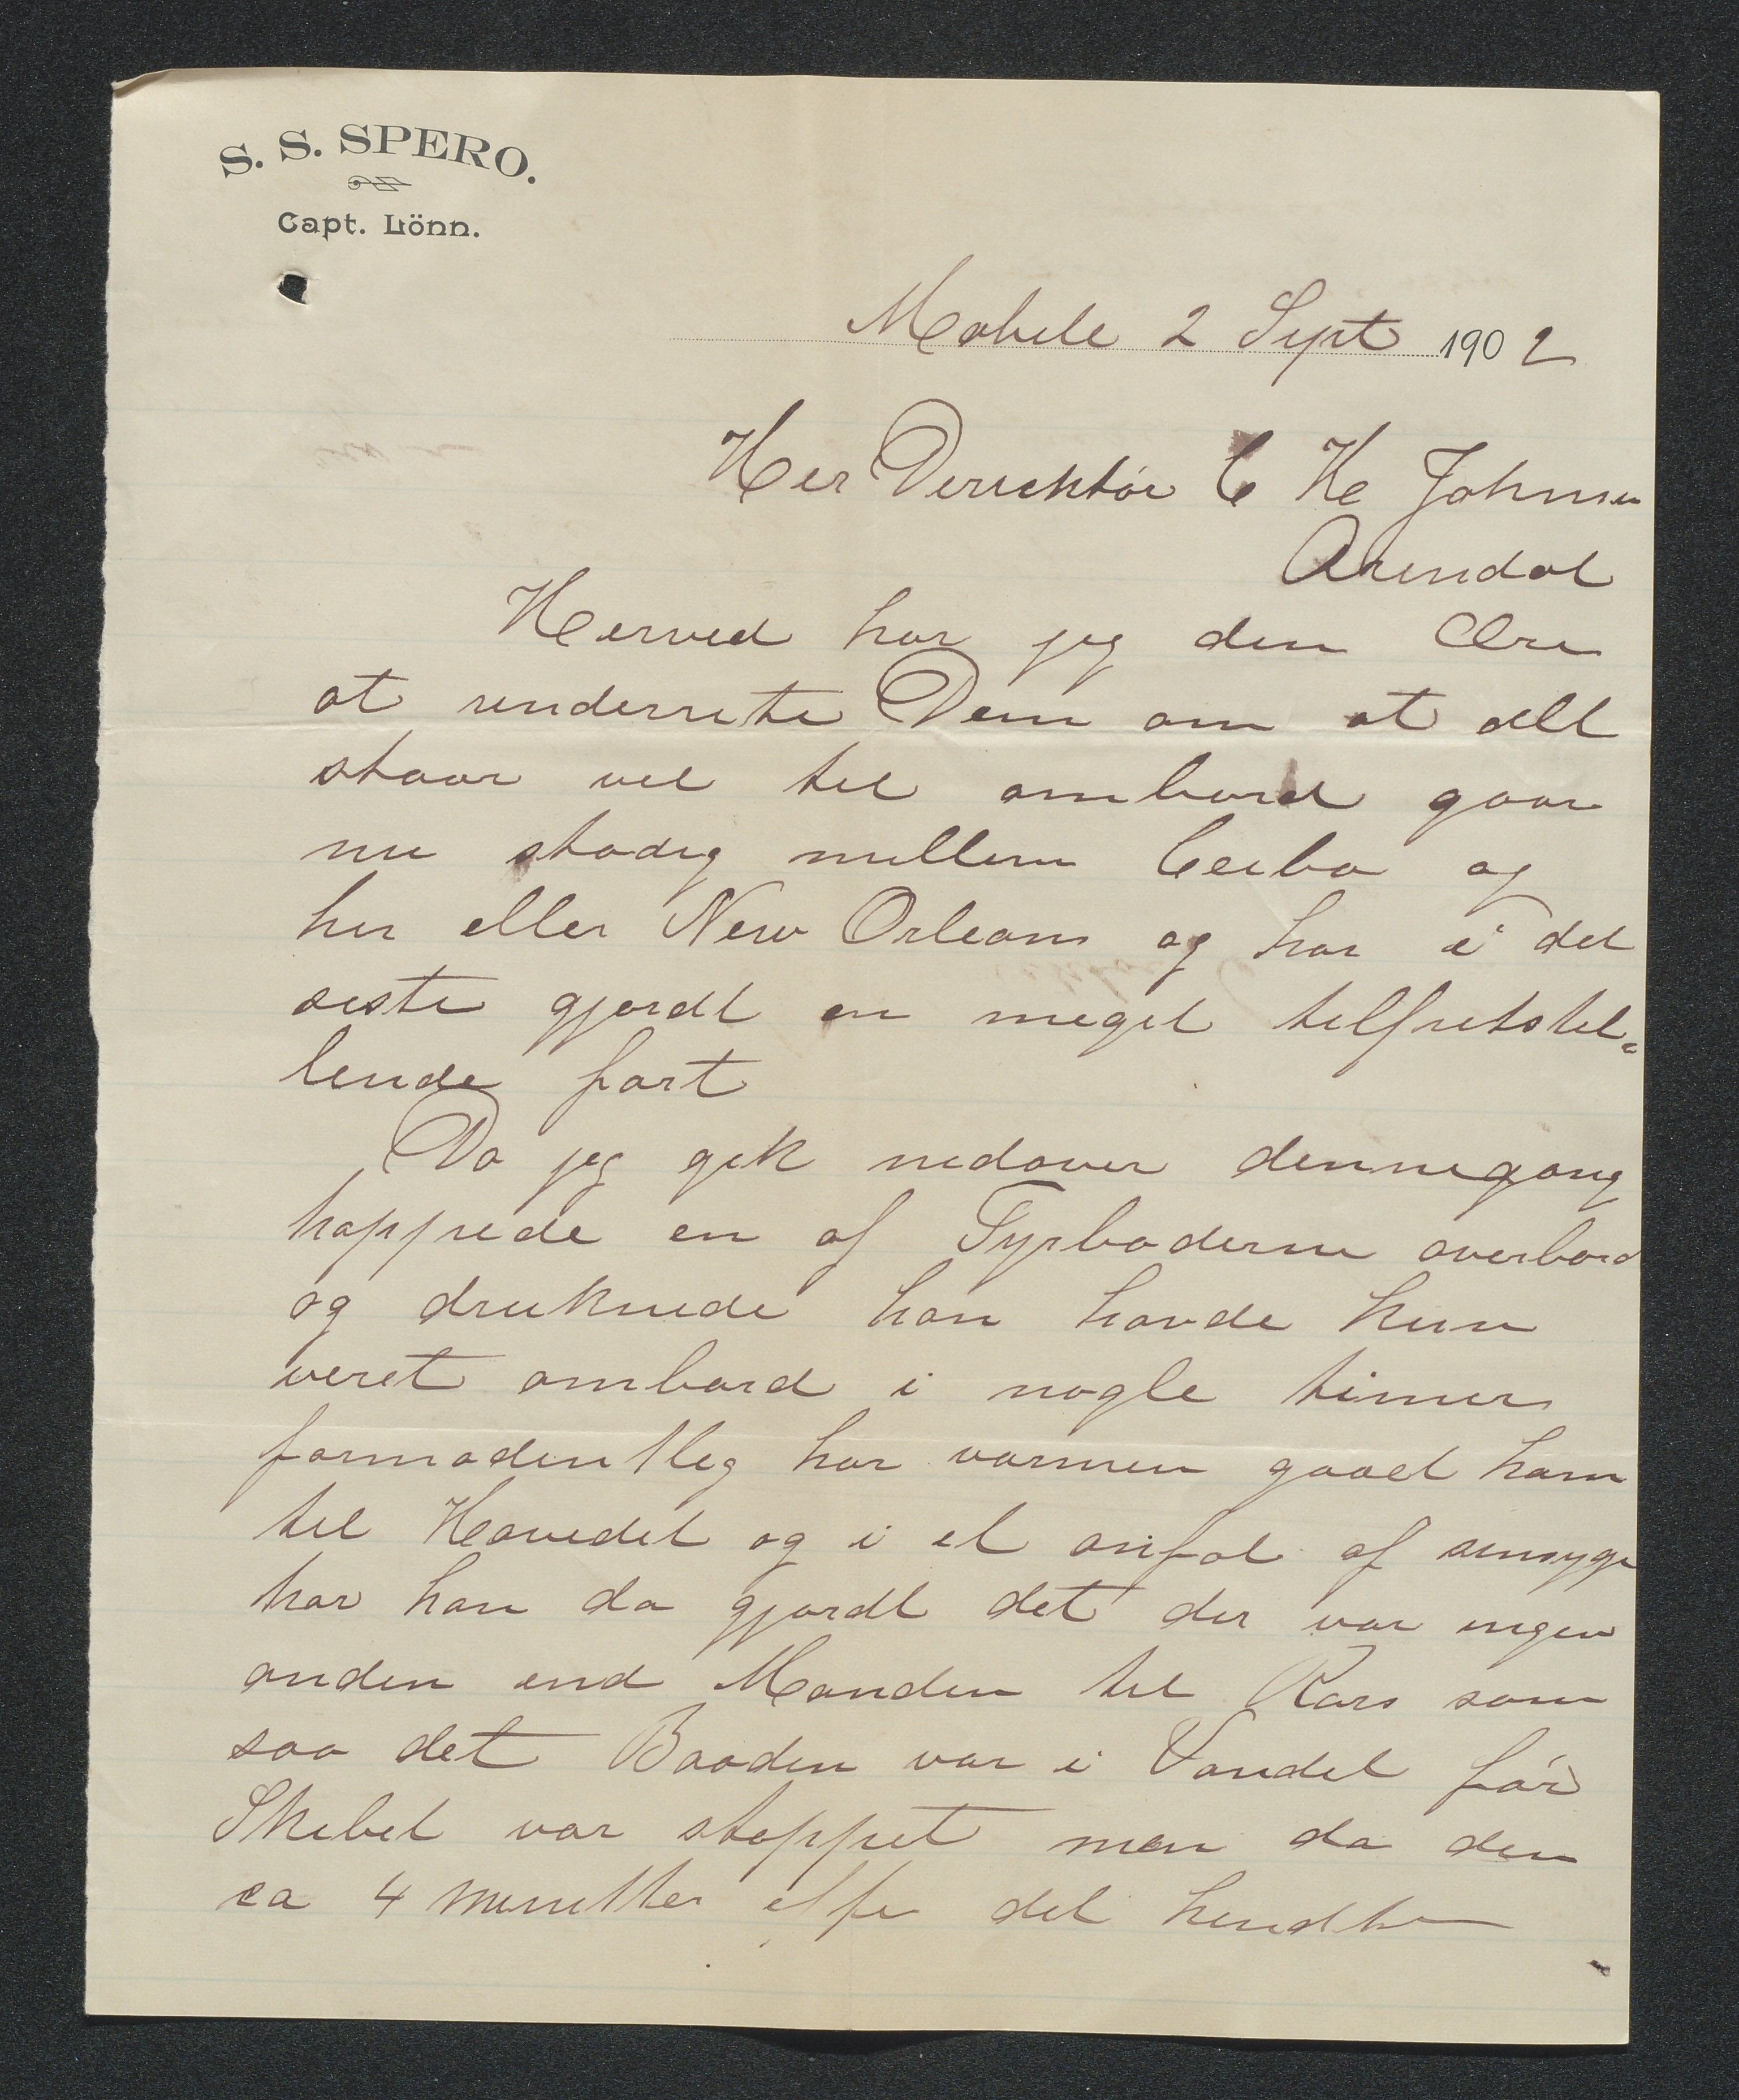 S. S. SPERO.
Capt. Lönn.
Mobile 2 Sept 1902
Her Dirichtör C H Johnsen
Arendal
Herved har jeg den Ære
at underrete Dem om at alt
staar vel til ombord gaar
nu stadig mellem Ceiba og
her eller New Orleans og har i det
siste gjordt en meget tilfretstel=
lende fart
Da jeg gik nedover dennegang
hoppede en af Fyrbøderne overbord
og druknede han havde kun
veret ombord i nogle timer
formodentlig har varmen gaaet ham
til Hovedet og i et anfal af sinsyge
har han da gjordt det der var ingen
anden end Manden til Rors som
saa det Baaden var i Vandet før
Skibet var stoppet men da den
ca 4 minutter efter det hendte